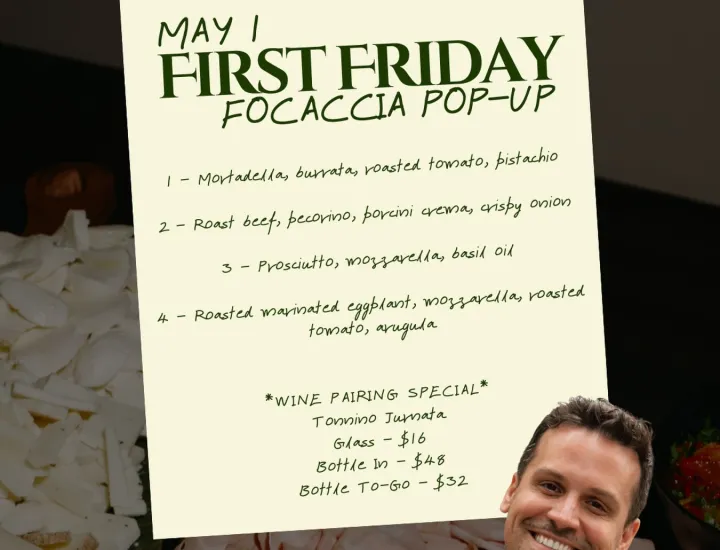 MAY 1
FIRST FRIDAY
FOCACCIA POP-UP
1 - Mortadella, burrata, roasted tomato, pistachio
2 - Roast beef, pecorino, porcini crema, crispy onion
3 - Prosciutto, mozzarella, basil oil
4 - Roasted marinated eggplant, mozzarella, roasted
tomato, arugula
*WINE PAIRING SPECIAL*
Tonnino Jumata
Glass - $16
Bottle In - $48
Bottle To-Go - $32